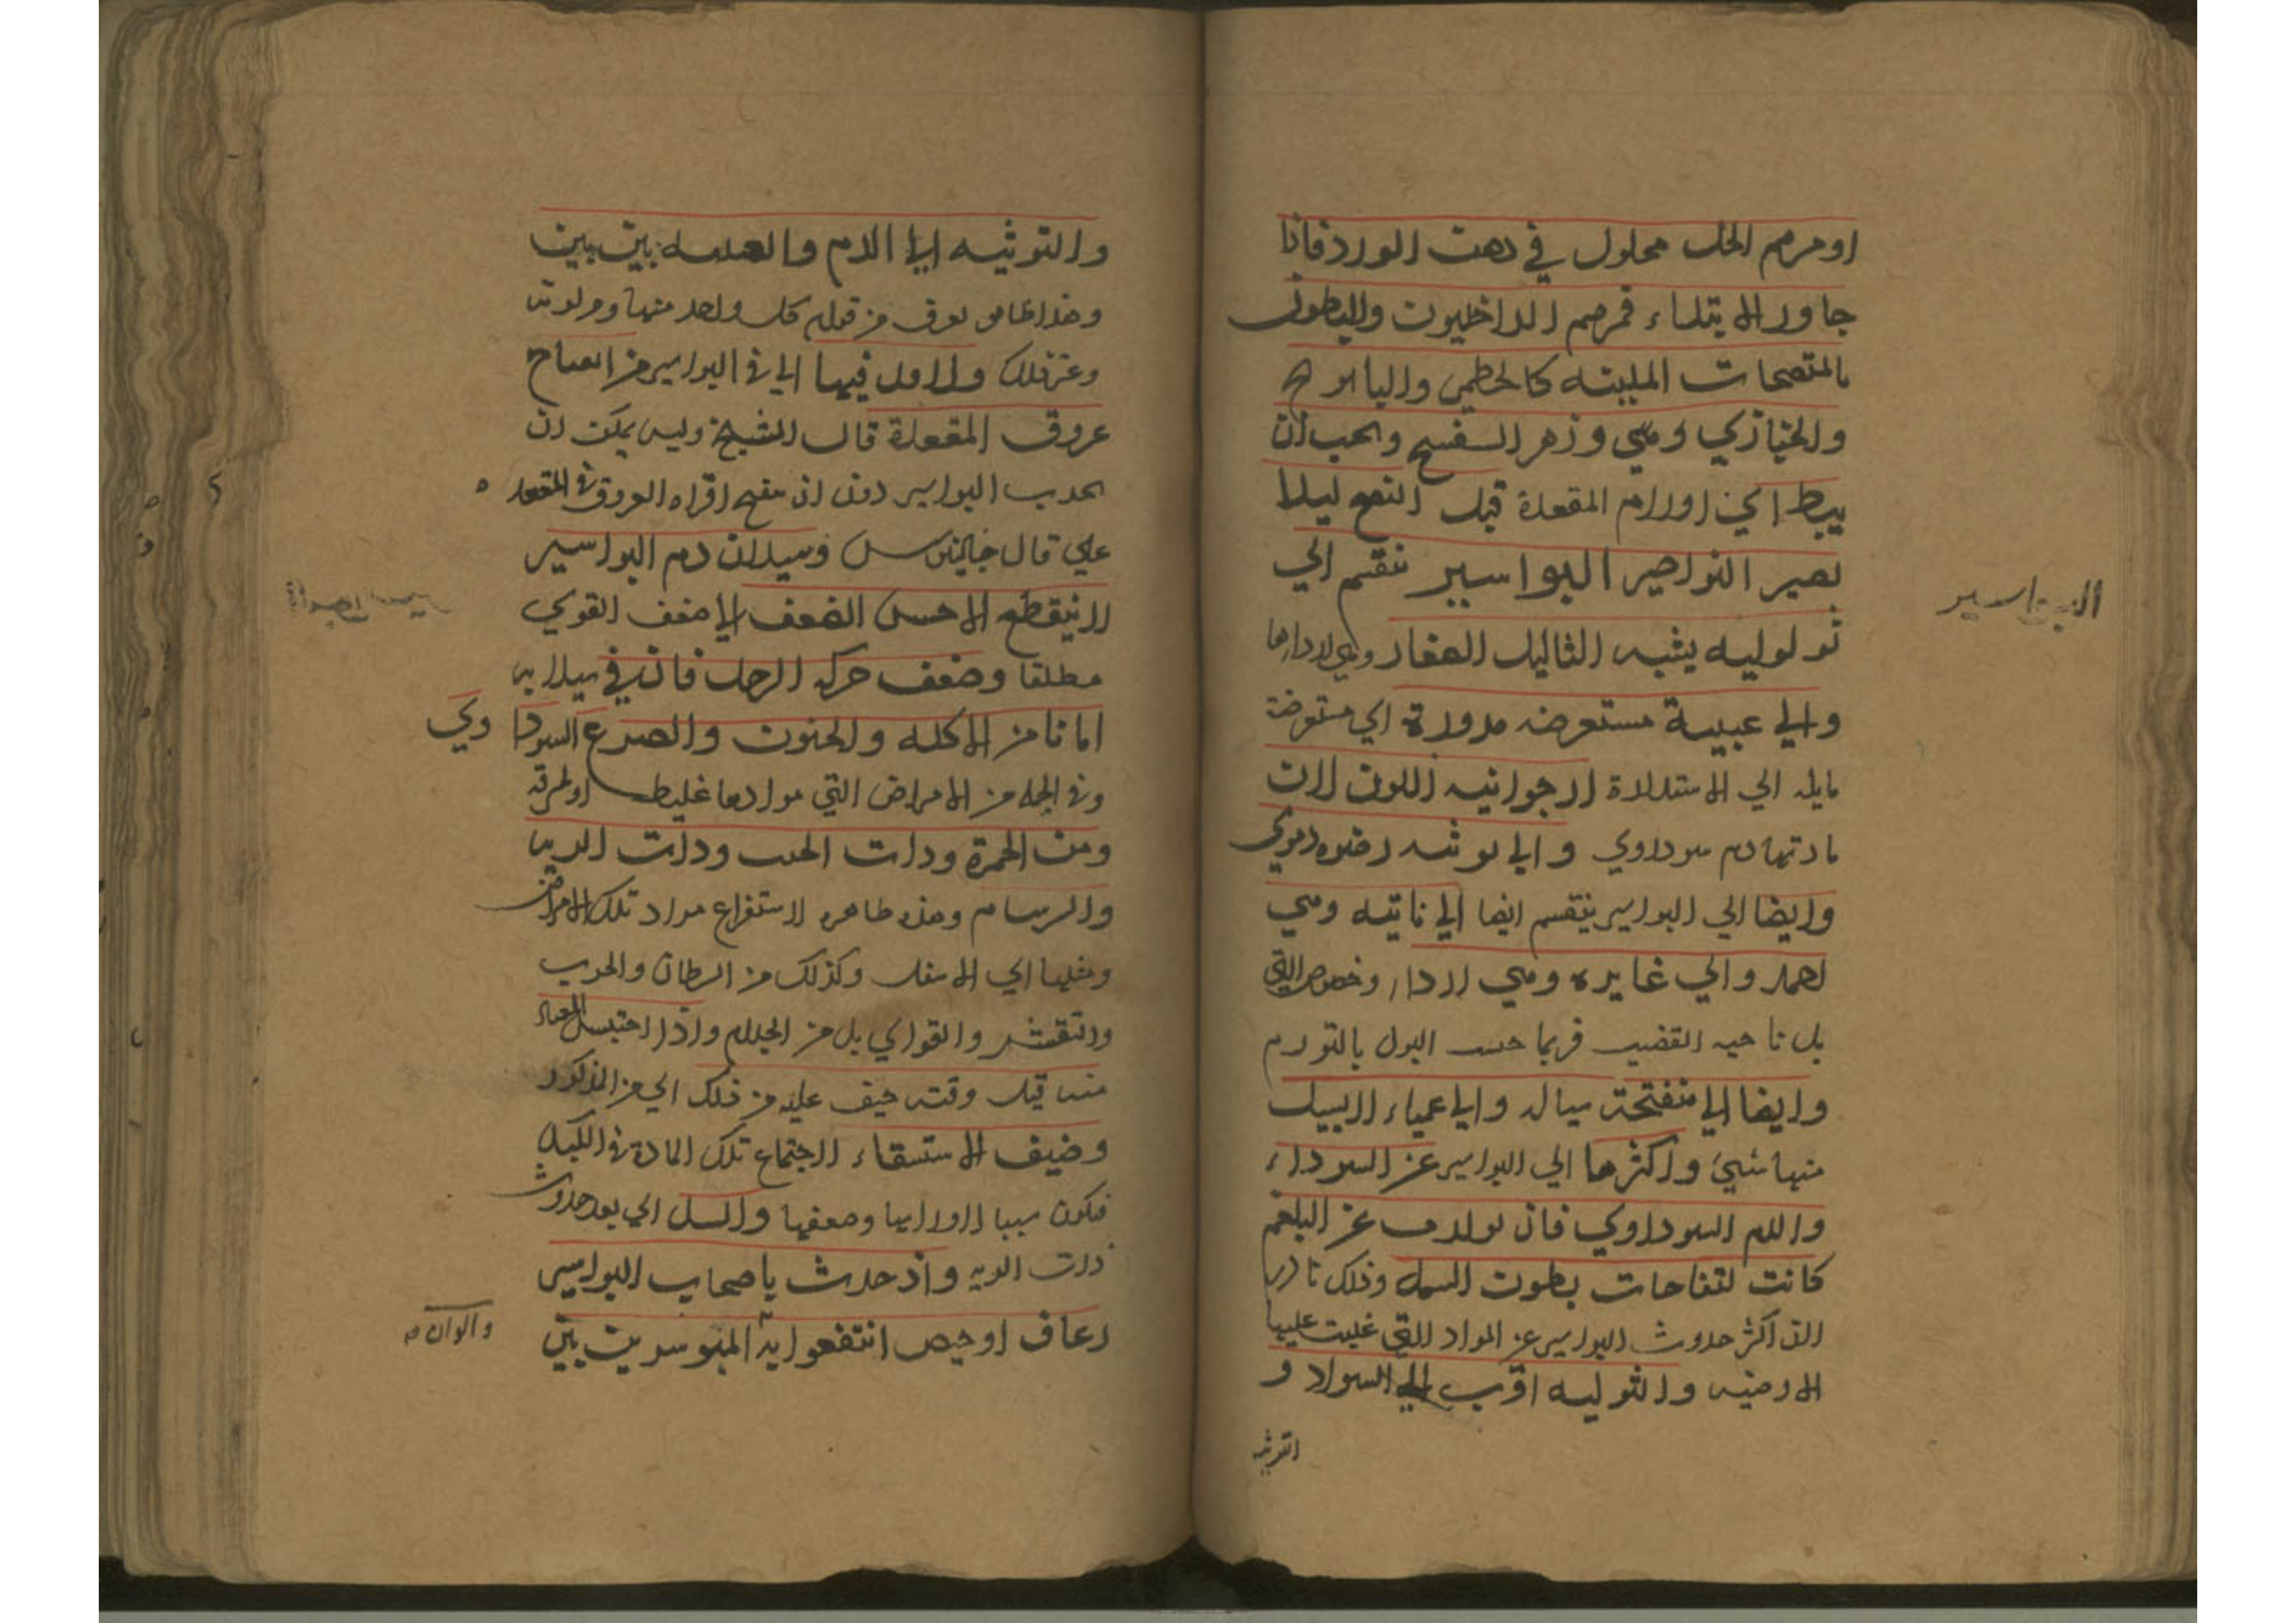 او مرهم الخل محلول في دهن الورد فاذا
جاوز الابتداء فمرهم الداخليون والنطول
بالمنضجات الملينه كالخطمي والبابونج
والخبازي وهي وزهر البنفسج ويجب ان
يبط اي اورام المقعدة قبل النضج ليلا
يصير النواصير البواسير تنقسم الي
ثولوليه يشبه الثاليل الصغار وهي اردارها
والي عنبية مستعرضه مدورة اي مستعرضة
مايله الي الاستدارة ارجوانيه اللون لان
مادتها دم سوداوي والي توثيه رخوه دموي
وايضا اي البواسير ينقسم ايضا الي ناتيه وهي
احمد والي غايره وهي اردا وخصوصا التي
يلي ناحيه القضيب فربما حبس البول بالتورم
وايضا الي منفتحة سياله والي عمياء لا يسيل
منها شيئ واكثرها اي البواسير عن السوداء
والدم السوداوي فان تولدت عن البلغم
كانت كنفاخات بطون السمك وذلك نادر
لان اكثر حدوث البواسير عن المواد التي غلبت عليها
الارضيه والثوليه اقرب الي السواد و
التوثيه
البواسير
والتوثيه الي الدم والعنبيه بين بين
وهذا ظاهر يعرف من قوام كل واحد منها ومن لونه
وغير ذلك والاول فيها اي في البواسير من انفتاح
عروق المقعدة قال الشيخ وليس يمكن ان
يحدث البواسير دون ان ينفتح افواه العروق في المقعده
علي قال جالينوس وسيلان دم البواسير
لا ينقطع الا حين الضعف اي ضعف القوي
مطلقا وضعف حركه الرجل فان في سيلانه
امانا من الاكله والجنون والصرع السودا وي
وفي الجمله من الامراض التي موادها غليظه او محرقه
ومن الحمرة وذات الجنب وذات الريه
والسرسام وهذه ظاهره لاستفراغ مواد تلك الامراض
وميلها الي الاسفل وكذلك من السرطان والجرب
والتقشر والقوابي بل من الجذام واذا احتبس المعتاد
منه قبل وقته خيف عليه من ذلك اي من المذكور
وخيف الاستسقاء لاجتماع تلك المادة في الكبد
فيكون سببا لاورامها وضعفها والسل اي بعد حدوث
ذات الريه واذ حدث باصحاب البواسير
رعاف او حيض انتفعوا به المبوسرين بين
والوان